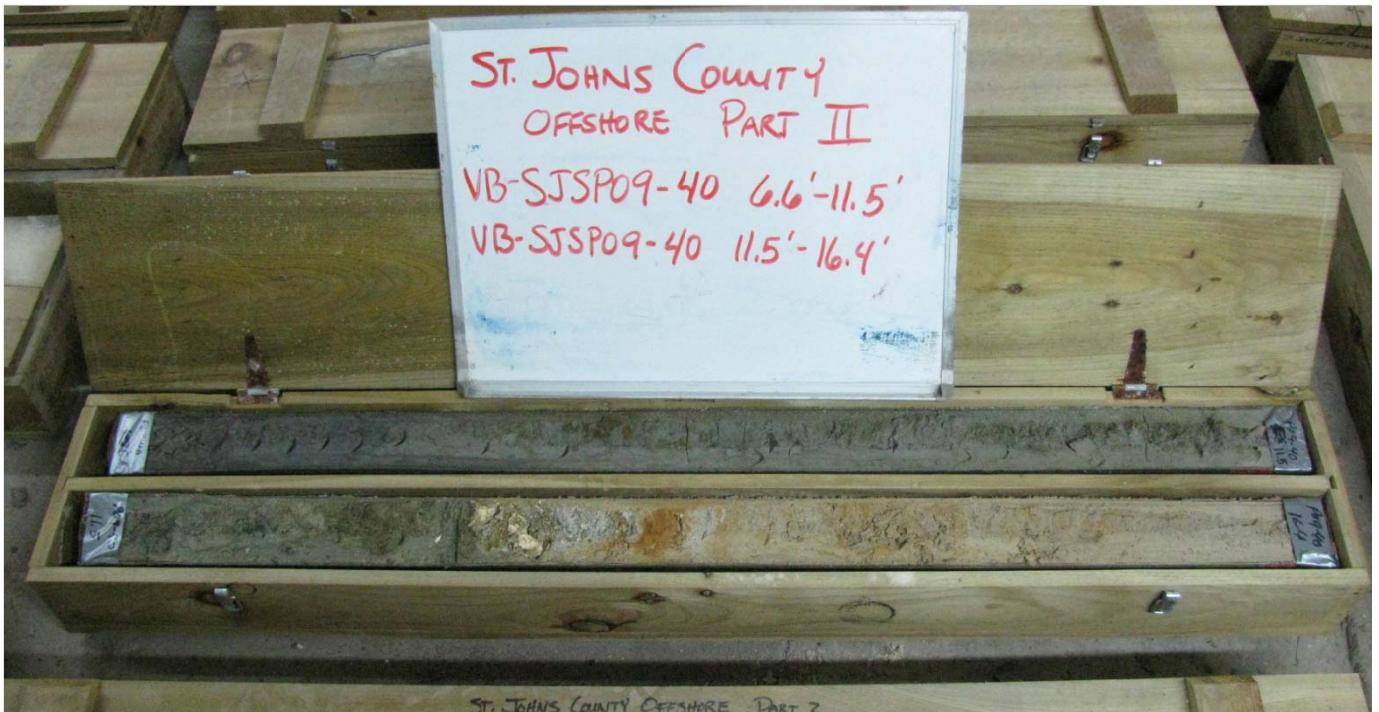 ST. JOHNS COUNTY
OFFSHORE PART II
VB-SJSP09-40 6.6'-11.5'
VB-SJSP09-40 11.5'-16.4'
11.5
11.5
16.4
ST. JOHNS COUNTY OFFSHORE PART 2